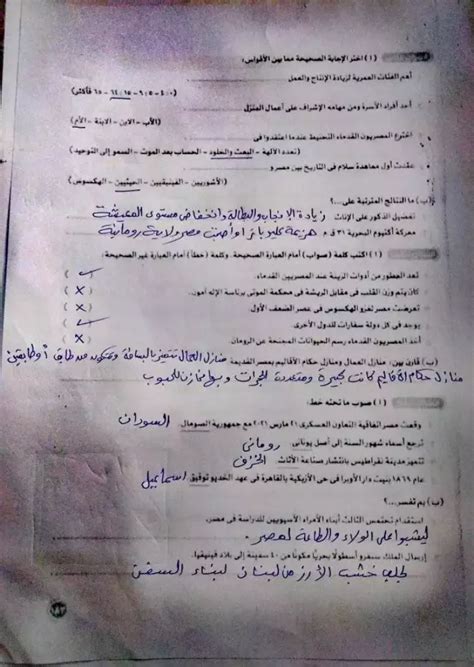 ( ١ ) اختر الإجابة الصحيحة مما بين الأقواس:
أهم الفئات العمرية لزيادة الإنتاج والعمل
أحد أفراد الأسرة ومن مهامه الإشراف على أعمال المنزل
(الأب - الابن - الابنة - الأم)
اخترع المصريون القدماء التحنيط عندما اعتقدوا فى
(تعدد الآلهة - البعث والخلود - الحساب بعد الموت - السمو إلى التوحيد)
عقدت أول معاهدة سلام فى التاريخ بين مصر و
(الآشوريين - الفينيقيين - الحيثيين - الهكسوس)
(ب) ما النتائج المترتبة على...؟
تفضيل الذكور على الإناث زيادة الإنجاب والبطالة وانخفاض مستوى المعيشة
معركة أكتيوم البحرية ٣١ ق.م هزيمة كليوباترا وأصبحت مصر ولاية رومانية
( ١ ) اكتب كلمة (صواب) أمام العبارة الصحيحة، وكلمة (خطأ) أمام العبارة غير الصحيحة:
تعد العطور من أدوات الزينة عند المصريين القدماء. ( ✓ )
كان يتم وزن القلب فى مقابل الريشة فى محكمة الموتى برئاسة الإله آمون. ( X )
تعرضت مصر لغزو الهكسوس فى عصر الضعف الأول. ( X )
يوجد فى كل دولة سفارات للدول الأخرى. ( ✓ )
أخذ المصريون القدماء رسم الحيوانات المجنحة عن الرومان ( X )
(ب) قارن بين: منازل العمال ومنازل حكام الأقاليم بمصر القديمة منازل العمال تتميز بالبساطة وتتكون من طابق أو طابقين
منازل حكام الأقاليم كانت كبيرة ومتعددة الحجرات وبها مخازن للحبوب
( ١ ) صوب ما تحته خط:
وقعت مصر اتفاقية التعاون العسكرى ٢١ مارس ٢٠٢١ مع جمهورية الصومال. السودان
ترجع أسماء شهور السنة إلى أصل يونانى. رومانى
تتميز مدينة نقراطيس بانتشار صناعة الأثاث. الخزف
عام ١٨٦٩ بنيت دار الأوبرا فى حى الأزبكية بالقاهرة فى عهد الخديو توفيق اسماعيل
(ب) بم تفسر...؟
استقدام تحتمس الثالث أبناء الأمراء الآسيويين للدراسة فى مصر.
ليشبوا على الولاء والطاعة لمصر
إرسال الملك سنفرو أسطولاً بحريًا مكونًا من ٤٠ سفينة إلى بلاد فينيقيا.
لجلب خشب الأرز من لبنان لبناء السفن